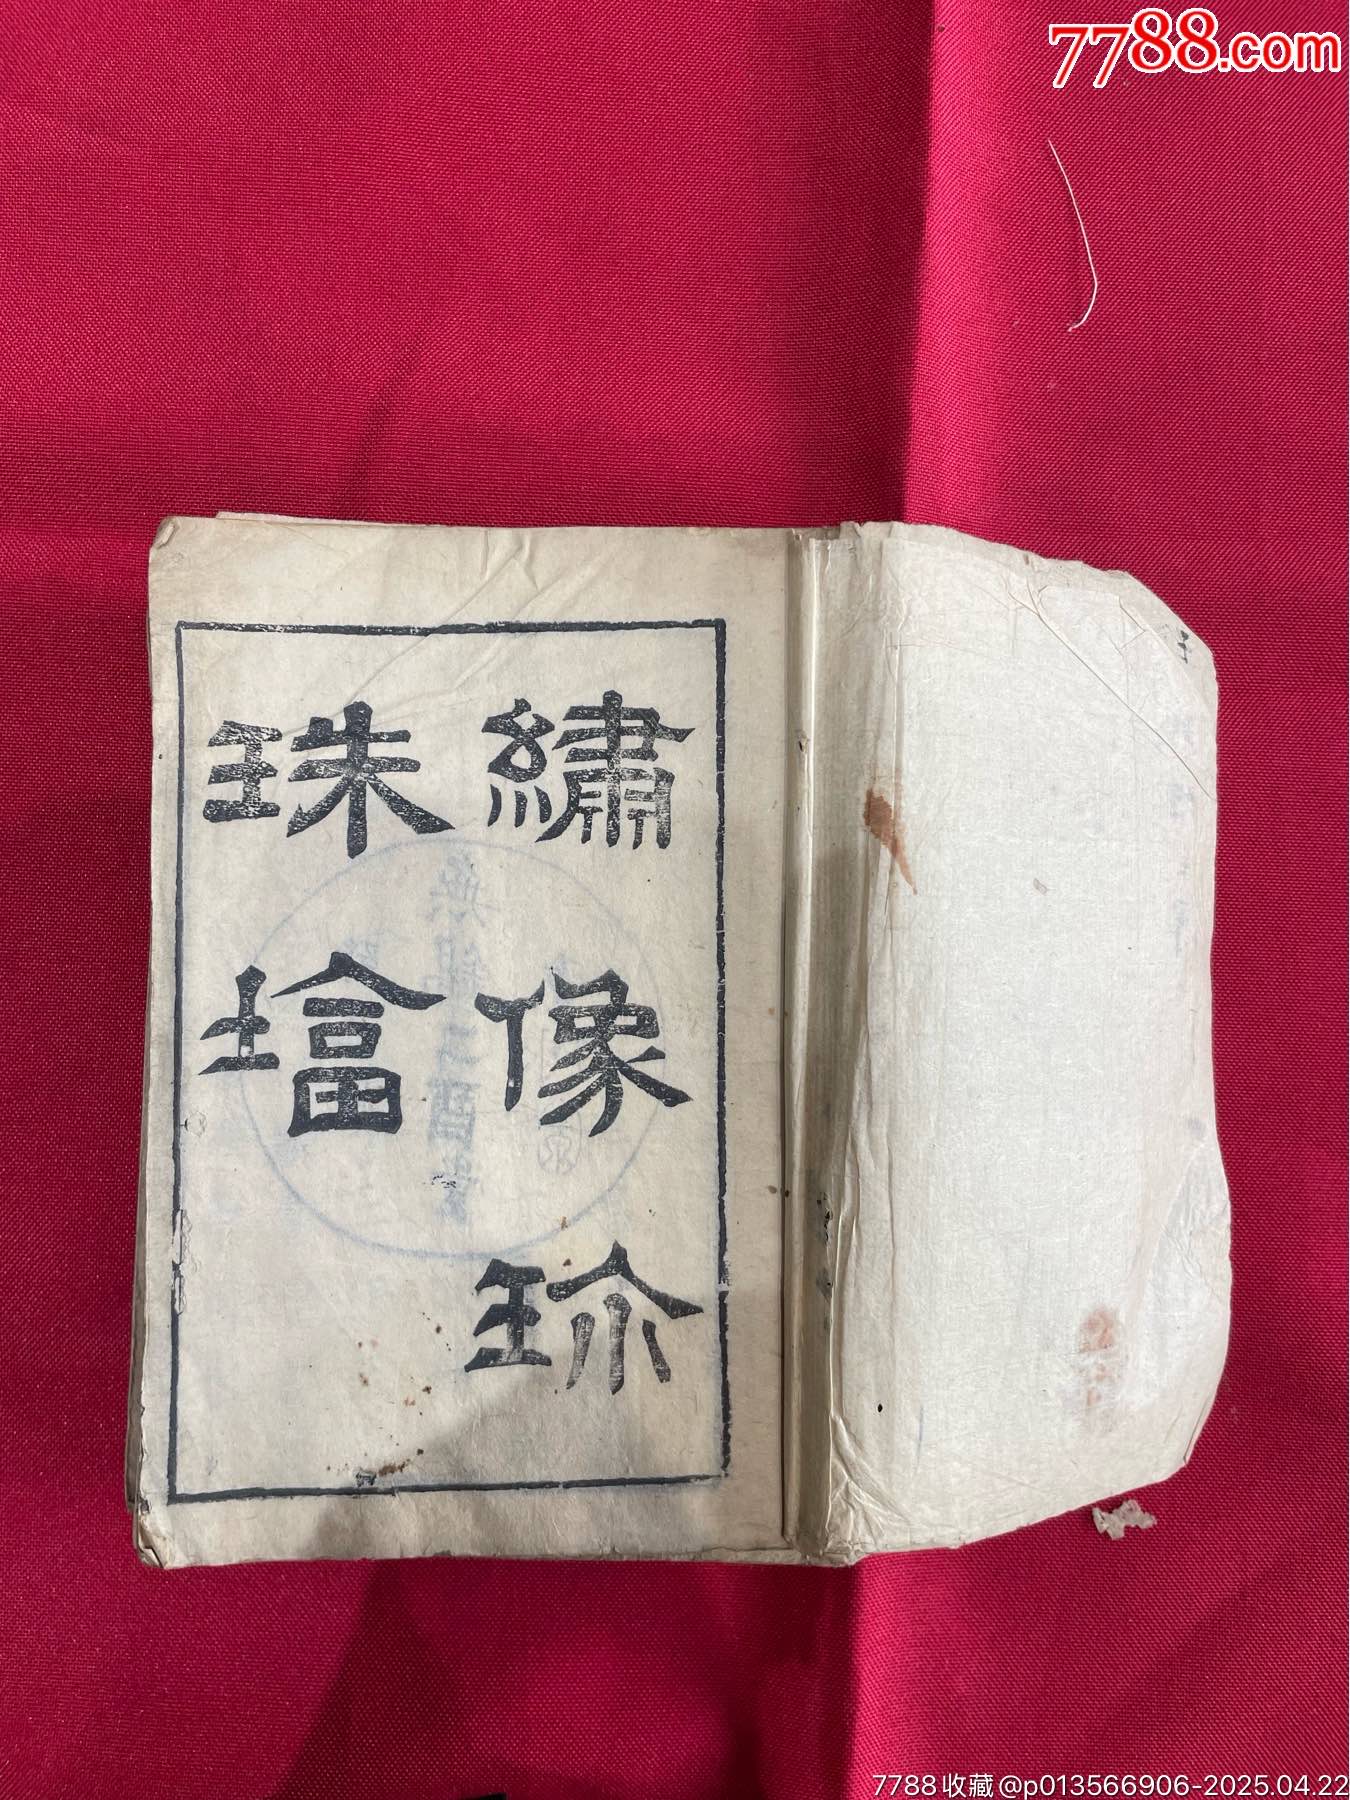 7788.com
繡像珎
珠墖
7788收藏@p013566906-2025.04.22